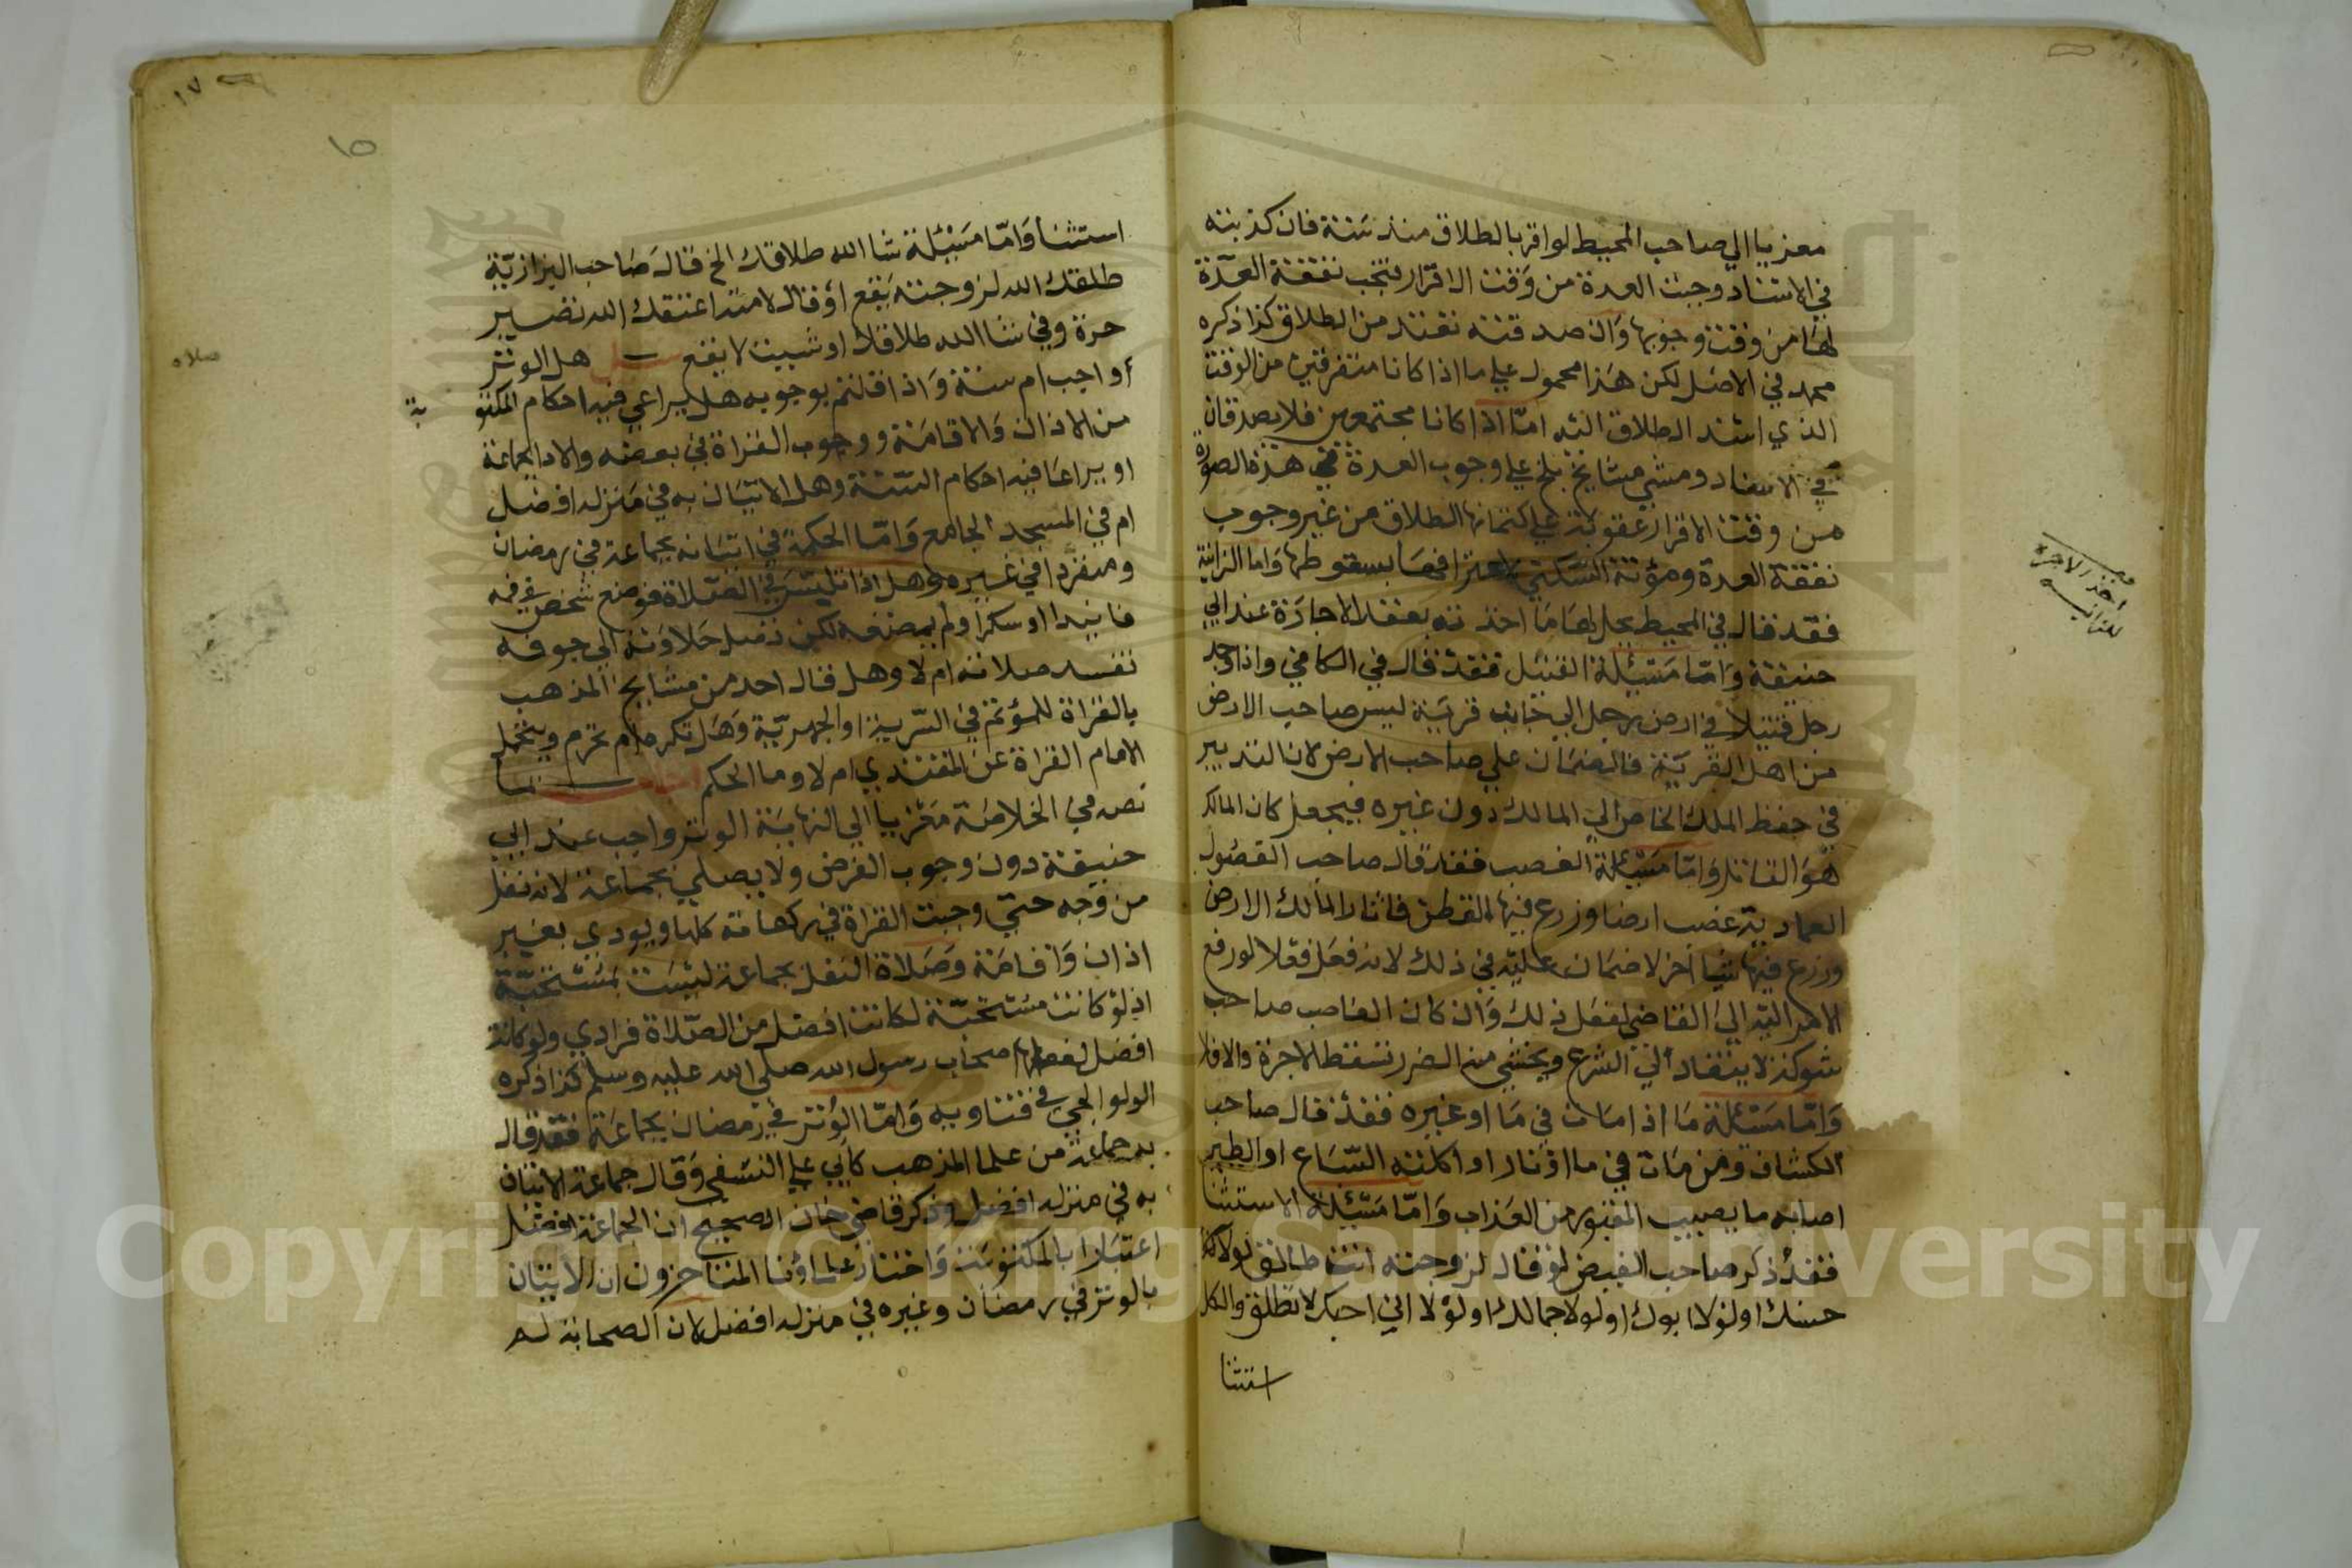 معزيا الي صاحب المحيط لو اقر بالطلاق منذ سنة فان كذبته
في الاسناد وجبت العدة من وقت الاقرار وتجب نفقة العدة
لها من وقت وجوبها وان صدقته تعتد من الطلاق كذا ذكره
محمد في الاصل لكن هذا محمول علي ما اذا كانا متفرقين من الوقت
الذي اسند الطلاق اليه اما اذا كانا مجتمعين فلا يصدقان
في الاسناد ومشي مشايخ بلخ علي وجوب العدة في هذه الصورة
من وقت الاقرار عقوبة علي كتمانها الطلاق من غير وجوب
نفقة العدة ومؤنة السكني لاعترافها بسقوطها واما الزانية
فقد قال في المحيط يحل لها ما اخذته بعقد الاجارة عند ابي
حنيفة واما مسئلة القتيل فقد قال في الكافي واذا وجد
رجل قتيلا في ارض رجل الي جانب قرية ليس صاحب الارض
من اهل القرية فالضمان علي صاحب الارض لان التدبير
في حفظ الملك الخاص الي المالك دون غيره فيجعل كان المالك
هو القاتل واما مسئلة الغصب فقد قال صاحب الفصول
العمادية غصب ارضا وزرع فيها القطن فاثار المالك الارض
وزرع فيها شيا اخر لا ضمان عليه في ذلك لانه فعل فعلا لو رفع
الامر اليه الي القاضي لفعل ذلك وان كان الغاصب صاحب
شوكة لا ينقاد الي الشرع ويخشي منه الضرر تسقط الاجرة والا فلا
واما مسئلة ما اذا مات في ما او غيره فقد قال صاحب
الكشاف ومن مات في ما او نار او اكلته السباع او الطير
اصابه ما يصيب المقبور من العذاب واما مسئلة الاستثنا
فقد ذكر صاحب الفيض لو قال لزوجته انت طالق لولا
حسنك او لولا ابوك او لولا جمالك او لولا اني احبك لا تطلق والكل
استثنا
اخذ الاجرة
للزانيه
١٧
١٥
استثنا واما مسئلة شا الله طلاقك الخ قال صاحب البزازية
طلقك الله لزوجته يقع او قال لامته اعتقك الله تصير
حرة وفي شا الله طلاقك او شيت لا يقع سئل هل الوتر
أواجب ام سنة واذا قلتم بوجوبه هل يراعي فيه احكام المكتو
بة
من الاذان والاقامة ووجوب القراة في بعضه والادا بجماعة
او يراعا فيه احكام السنة وهل الاتيان به في منزله افضل
ام في المسجد الجامع واما الحكمة في اتيانه بجماعة في رمضان
ومنفردا في غيره وهل اذا تلبس في الصلاة فوضع شخص في فيه
فانيدا او سكرا ولم يمضغه لكن تصل حلاوته الي جوفه
تفسد صلاته ام لا وهل قال احد من مشايخ المذهب
بالقراة للمؤتم في السرية او الجهرية وهل تكره ام تحرم ويتحمل
الامام القراة عن المقتدي ام لا وما الحكم
نص في الخلاصة معزيا الي النهاية الوتر واجب عند ابي
حنيفة دون وجوب الفرض ولا يصلي بجماعة لانه نفل
من وجه حتي وجبت القراة في ركعاته كلها ويودي بغير
اذان واقامة وصلاة النفل بجماعة ليست بمستحبة
اذ لو كانت مستحبة لكانت افضل من الصلاة فرادي ولو كانت
افضل لفعلها اصحاب رسول الله صلي الله عليه وسلم كذا ذكره
الولوالجي في فتاويه واما الوتر في رمضان بجماعة فقد قال
به جماعة من علما المذهب كابي علي النسفي وقال جماعة الاتيان
به في منزله افضل وذكر قاضي خان الصحيح ان الجماعة افضل
اعتبارا بالمكتوبة واختار علماؤنا المتاخرون ان الاتيان
بالوتر في رمضان وغيره في منزله افضل لان الصحابة لم
صلاه
Copyright © King Saud University